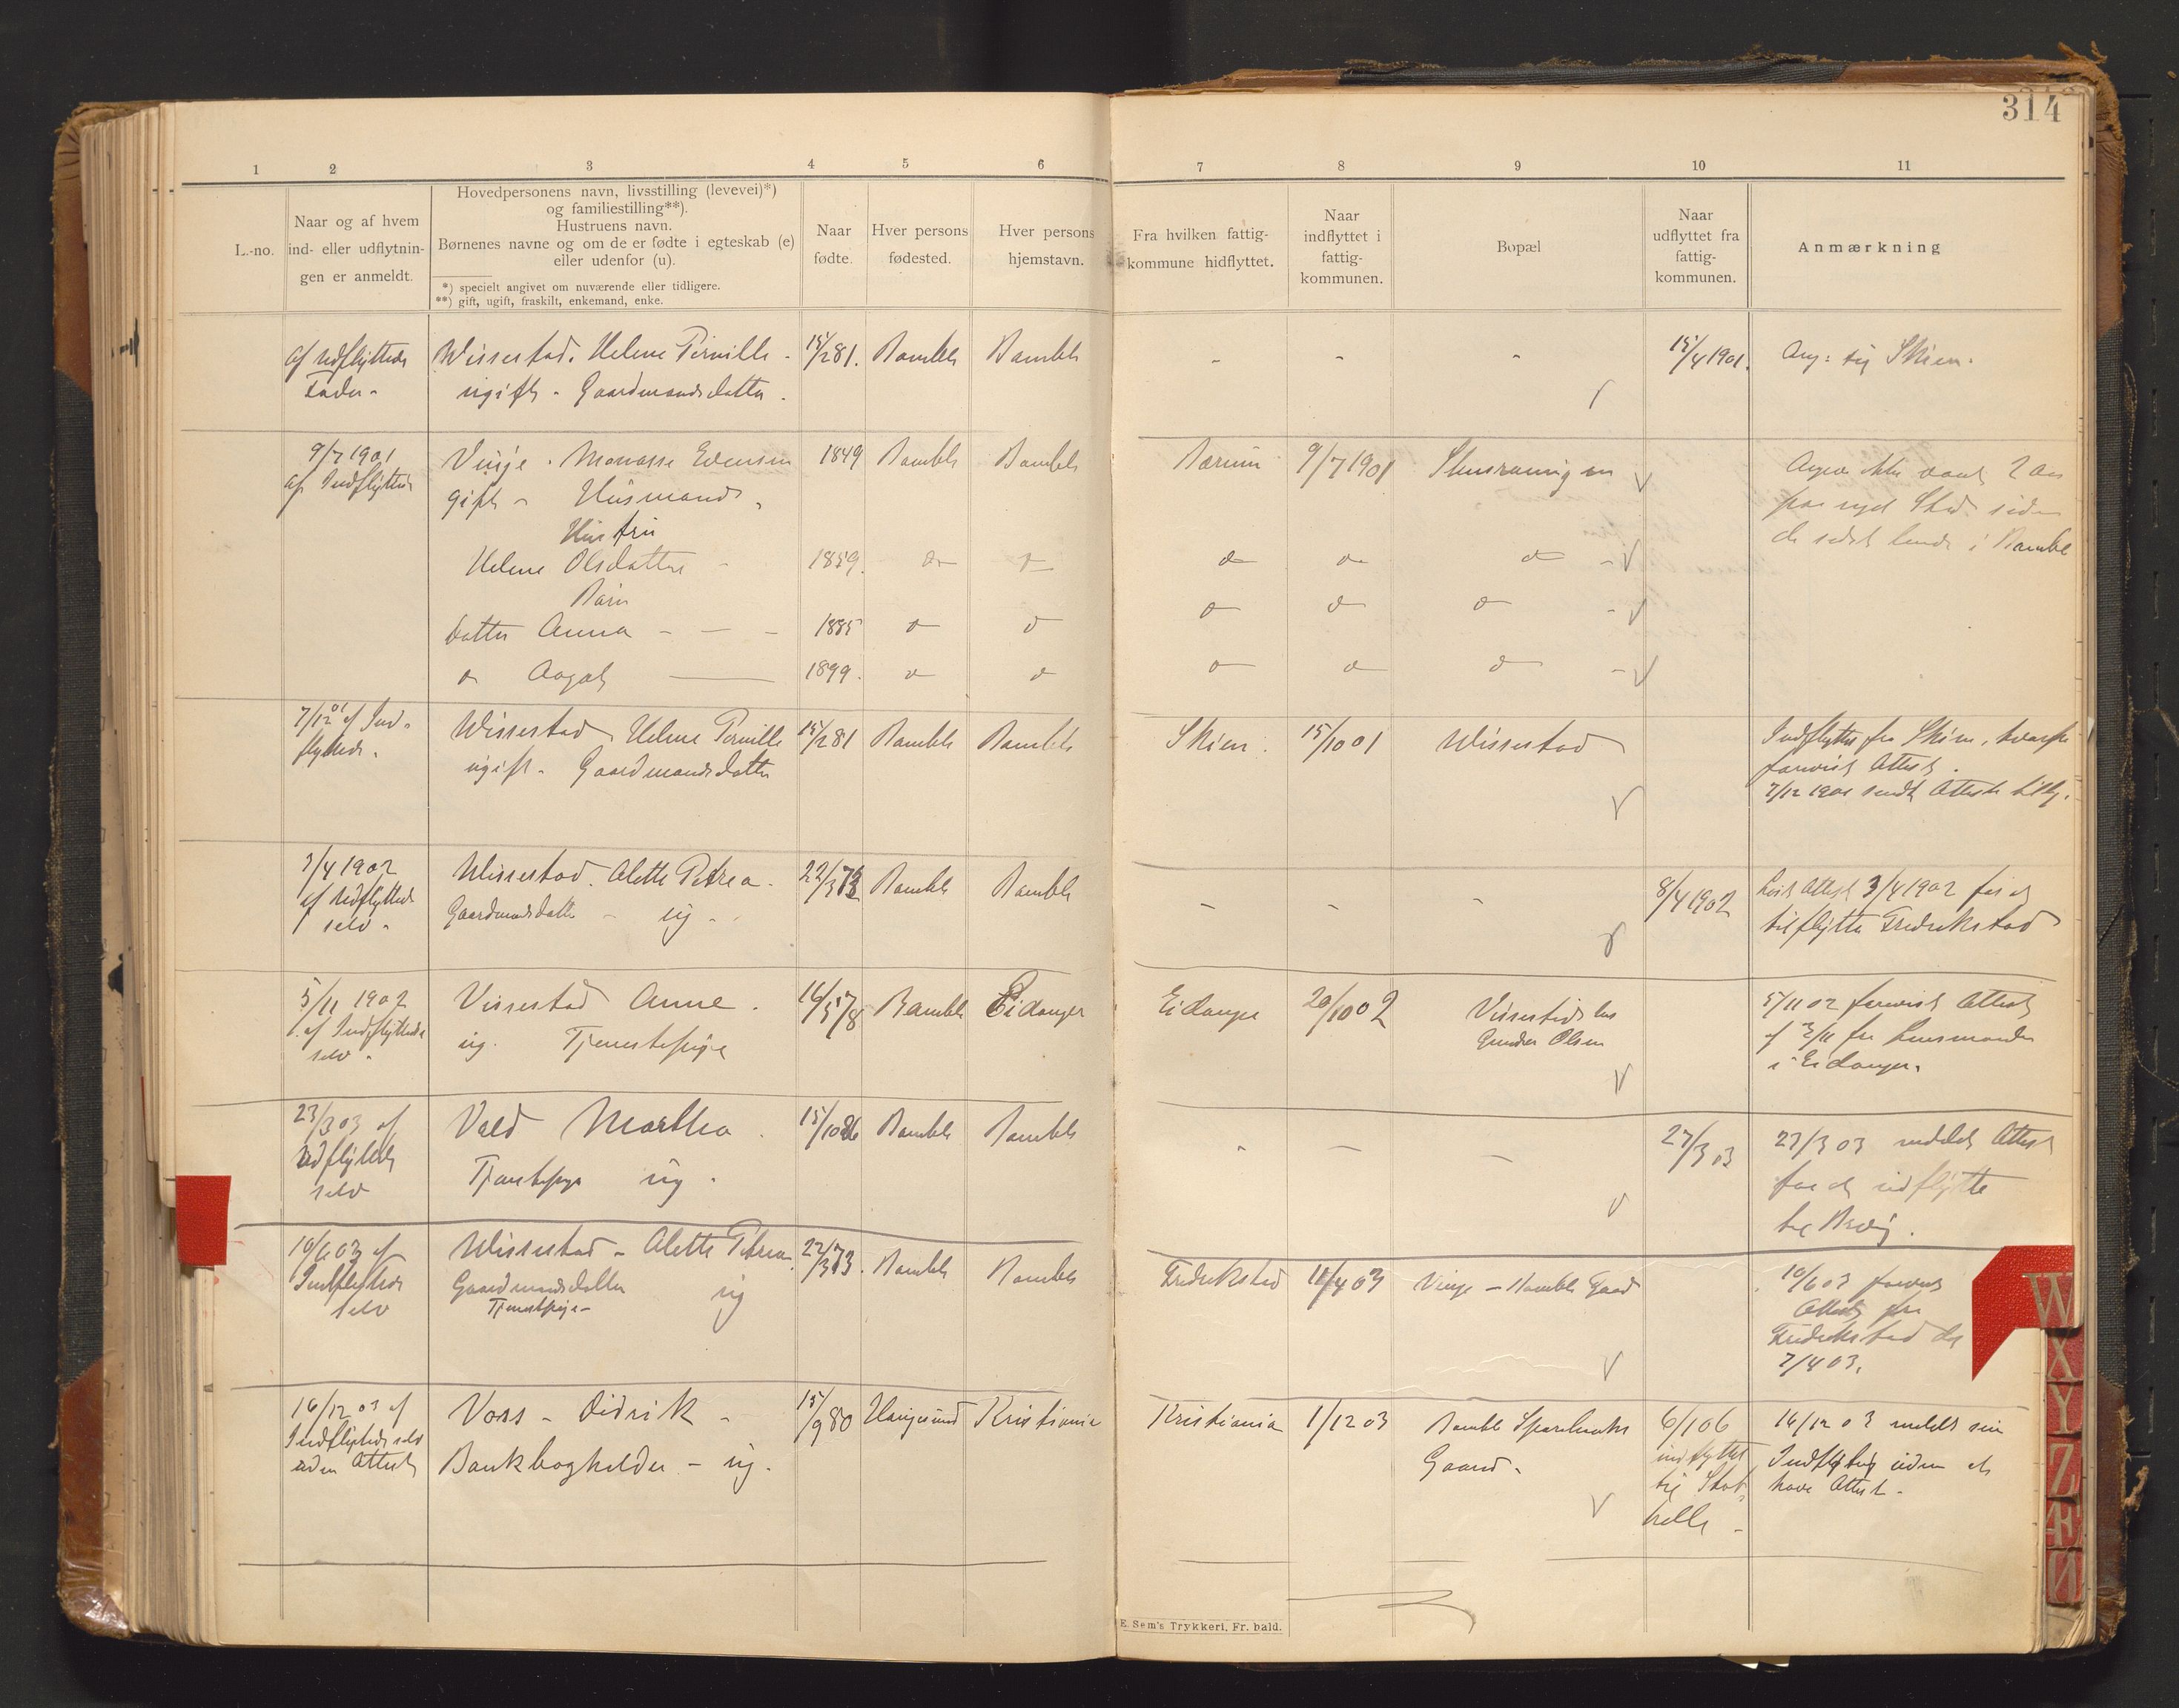 314
1 2 3 4 5 6 7 8 9 10 11
L.-no.
Naar og af hvem
ind- eller udflytnin-
gen er anmeldt.
Hovedpersonens navn, livsstilling (levevei)*)
og familiestilling**).
Hustruens navn.
Børnenes navne og om de er fødte i egteskab (e)
eller udenfor (u).
*) specielt angivet om nuværende eller tidligere.
**) gift, ugift, fraskilt, enkemand, enke.
Naar
fødte.
Hver persons
fødested.
Hver persons
hjemstavn.
Fra hvilken fattig-
kommune hidflyttet.
Naar
indflyttet i
fattig-
kommunen.
Bopæl
Naar
udflyttet fra
fattig-
kommunen.
Anmærkning
af Udflyttede Wissestad. Helene Pernille - 15/2 81. Bamble Bamble - - - 15/4 1901. til Skien.
Fader - ugift - Gaardmandsdatter.
9/7 1901 Vinje. Manasse Evensen 1849 Bamble Bamble 9/7 1901
af Indflyttede gift - Husmand
Hustru
Helene Olsdatter - 1859.
Barn
Datter Anna - - - 1885
Aagot 1899.
7/12 01 af Ind- Wissestad Helene Pernille 15/2 81 Bamble Bamble Skien. 15/10 01 Wissestad Indflyttet fra Skien,
flyttede. ugift - Gaardmandsdatter forevist Attest.
7/12 1901 sendt Attest
3/4 1902 Wissestad. Alette Petrea. 22/3 73 Bamble Bamble - - - 8/4 1902 Attest 3/4 1902 for at
af Udflyttede Gaardmandsdatter - ug - tilflytte Fredrikstad
selv -
5/11 1902 Vissestad Anne. 16/5 78 Bamble Eidanger Eidanger 20/10 02 Vissestad hos 5/11 02 forevist Attest
af Indflyttede ug. Tjenestepige Gunder Olsen af 3/11 fra Lensmanden
selv - i Eidanger.
23/3 03 af Vold Martha. 15/10 86 Bamble Bamble - - - 27/3 03 23/3 03 meddelt Attest
Udflyttede Tjenestepige ug. for at udflytte
selv til Brevig.
10/6 03 af Wissestad - Alette Petrea. 22/3 73. Bamble Bamble Fredrikstad 11/4 03 Vinje - Bamble Gaard 10/6 03 forevist
Indflyttede Gaardmandsdatter ug Attest fra
selv Tjenestepige - Fredrikstad dat
7/4 03.
16/12 03 af Voss - Didrik - 15/9 80 Haugesund Kristiania Kristiania 1/12 03 Bamble Sparebanks 6/1 06 16/12 03 meldt sin
Indflyttede selv Bankbogholder - ug. Gaard. udflyttet Indflytning uden at
uden Attest til Stat- have Attest.
helle -
E. Sem's Trykkeri, Fr. bald.
W
X
Y
Z
Æ
Ø